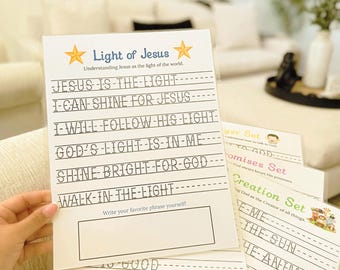 Light of Jesus
Understanding Jesus as the light of the world.
JESUS IS THE LIGHT
I CAN SHINE FOR JESUS
I WILL FOLLOW HIS LIGHT
GOD'S LIGHT IS IN ME
SHINE BRIGHT FOR GOD
WALK IN THE LIGHT
Write your favorite phrase yourself!
Set
TO GOD
Set
Creation Set
of all things.
ME
THE SUN
THE ANIMA